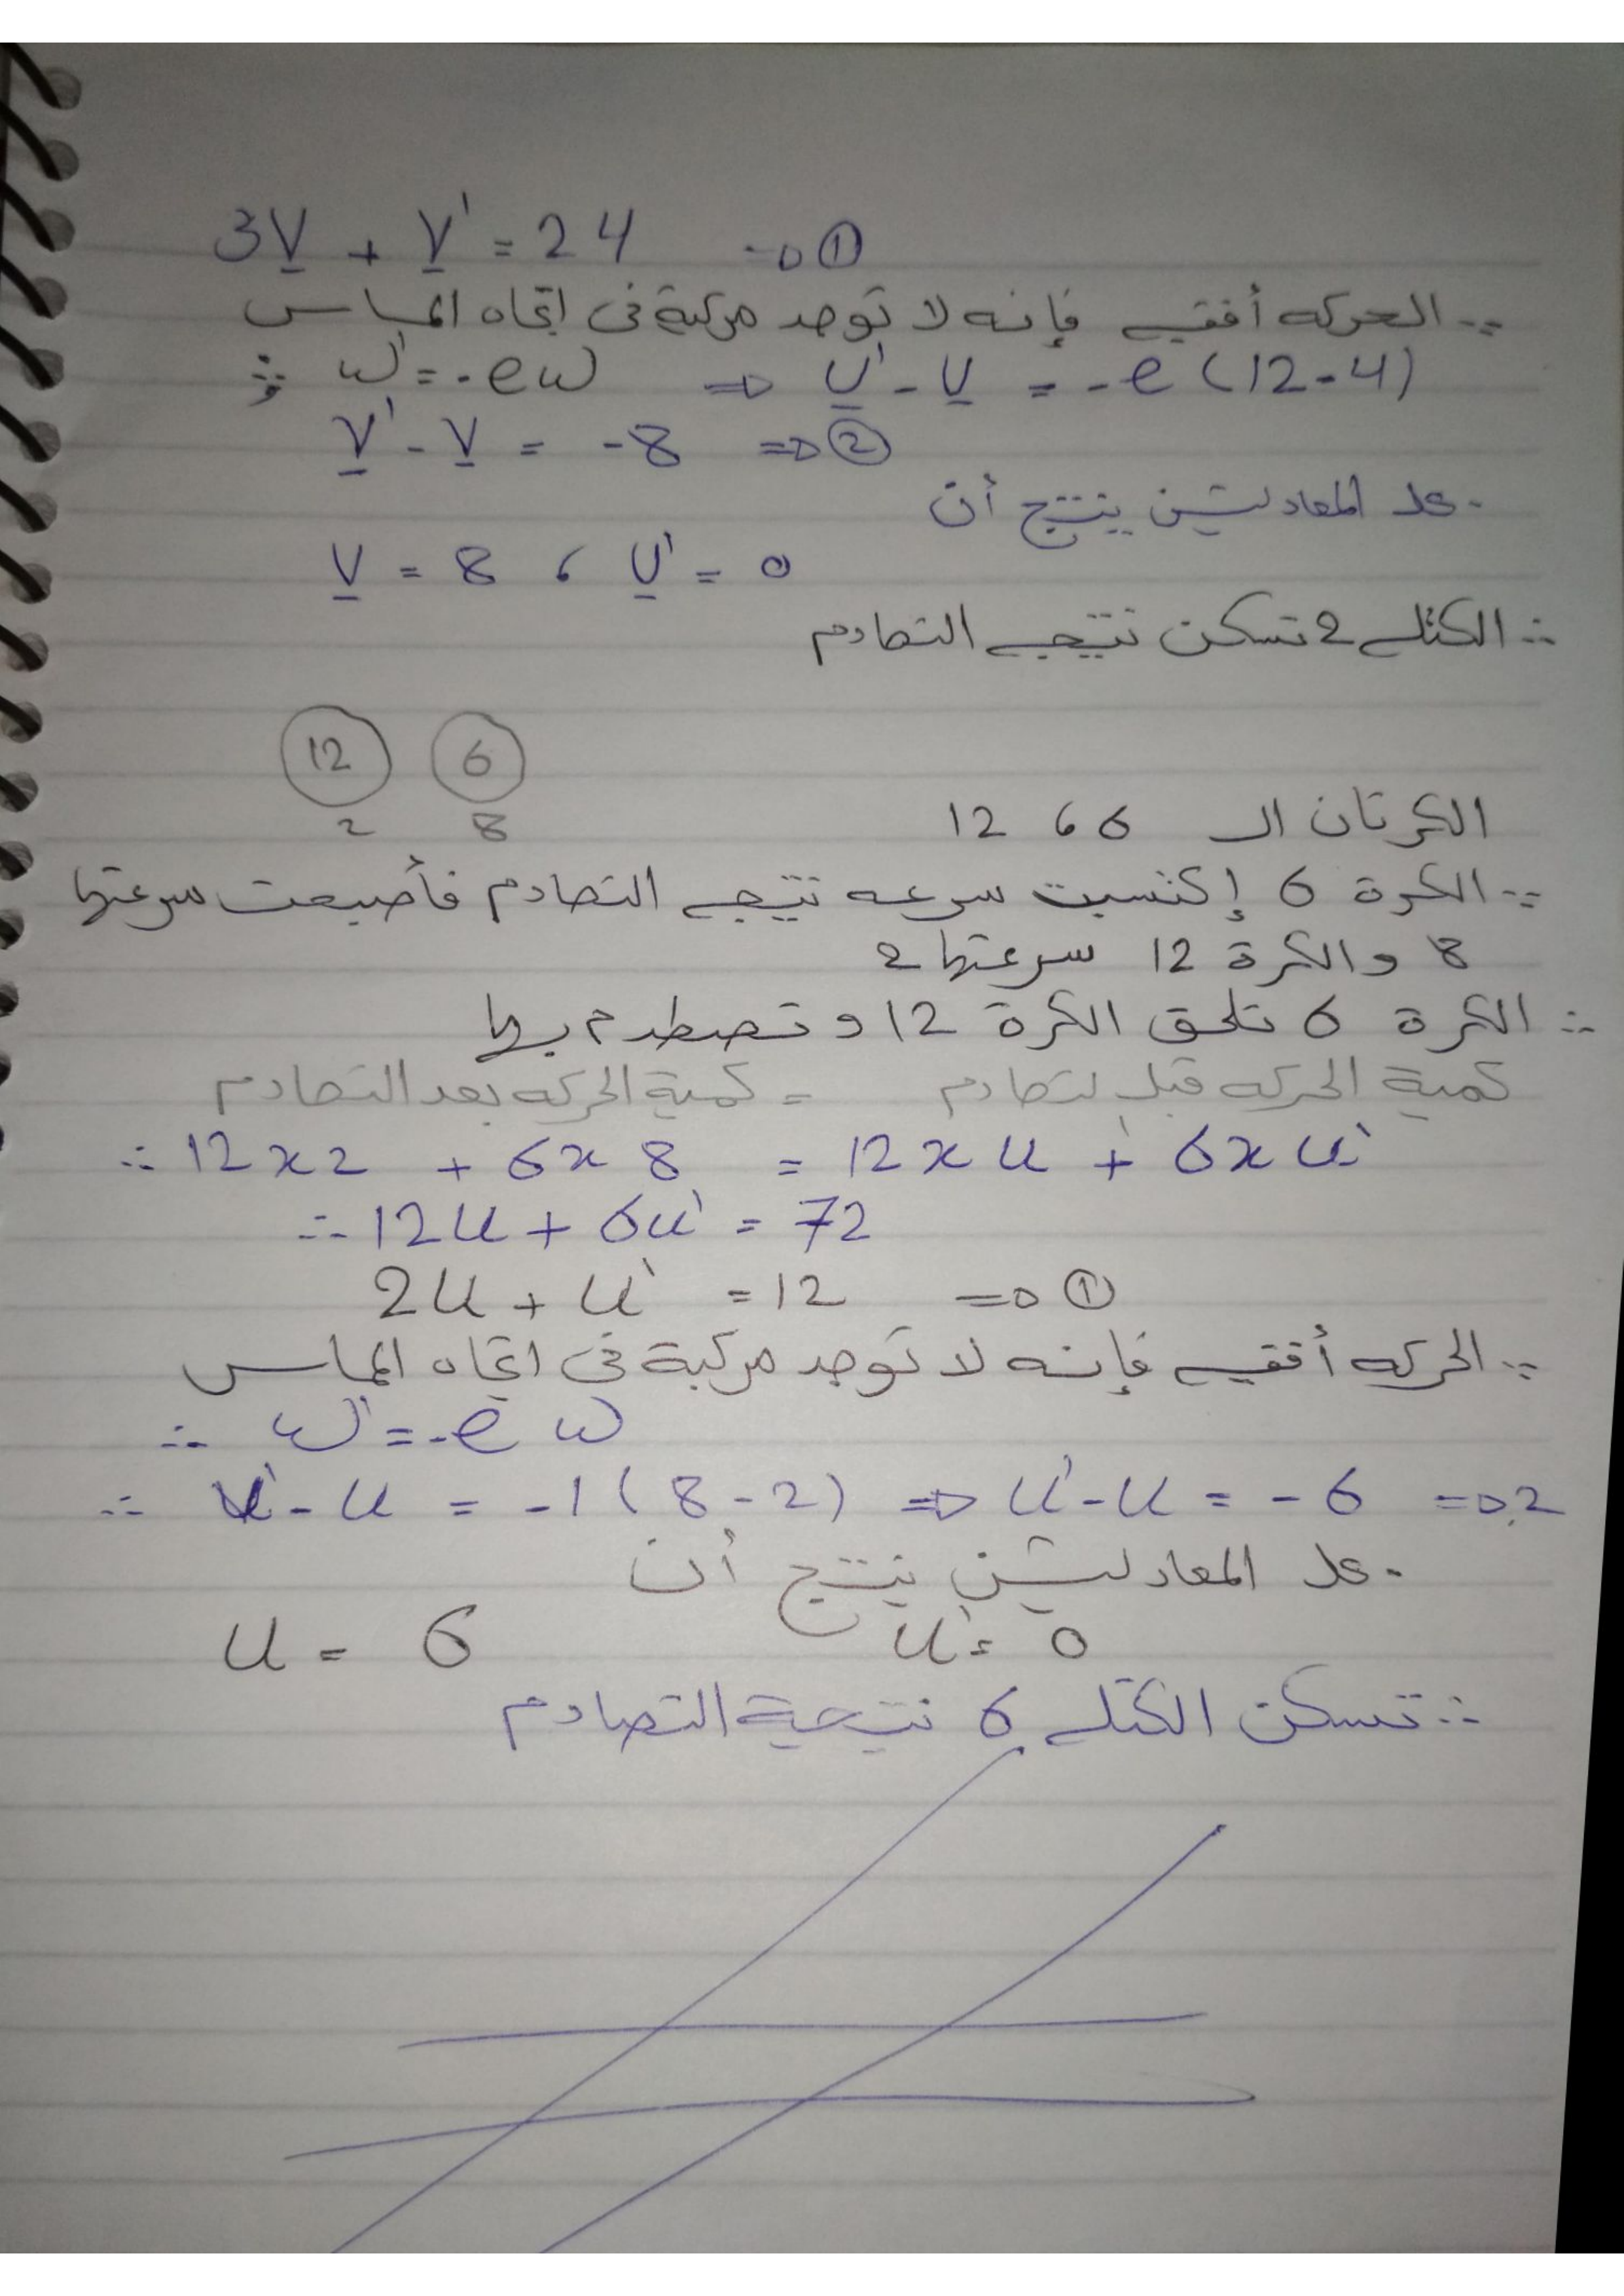 3V + V' = 24 => ①
∵ الحركه أفقيه فإنه لا توجد مركبة فى اتجاه المماس
∴ w' = -ew => V' - V = -e (12-4)
V' - V = -8 => ②
بحل المعادلتين ينتج أن
V = 8 ، V' = 0
∴ الكتله 2 تسكن نتيجه التصادم
12 6
2 8
الكرتان الـ 6 ، 12
∵ الكرة 6 إكتسبت سرعه نتيجه التصادم فأصبحت سرعتها
8 والكرة 12 سرعتها 2
∴ الكرة 6 تلحق الكرة 12 و تصطدم بها
كمية الحركه قبل لتصادم = كمية الحركه بعد التصادم
∴ 12x2 + 6x8 = 12xu + 6xu'
∴ 12u + 6u' = 72
2u + u' = 12 => ①
∵ الحركه أفقيه فإنه لا توجد مركبة فى اتجاه المماس
∴ w' = -e w
∴ u' - u = -1(8-2) => u' - u = -6 => 2
بحل المعادلتين ينتج أن
u = 6 u' = 0
∴ تسكن الكتله 6 نتيجة التصادم